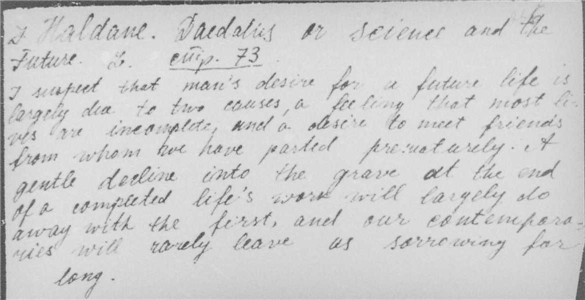 J Haldane. Daedalus or science and the
Future. L. стр. 73.
I suspect that man's desire for a future life is
largely due to two causes, a feeling that most li-
ves are incomplete, and a desire to meet friends
from whom we have parted prematurely. A
gentle decline into the grave at the end
of a completed life's work will largely do
away with the first, and our contempora-
ries will rarely leave as sorrowing for
long.